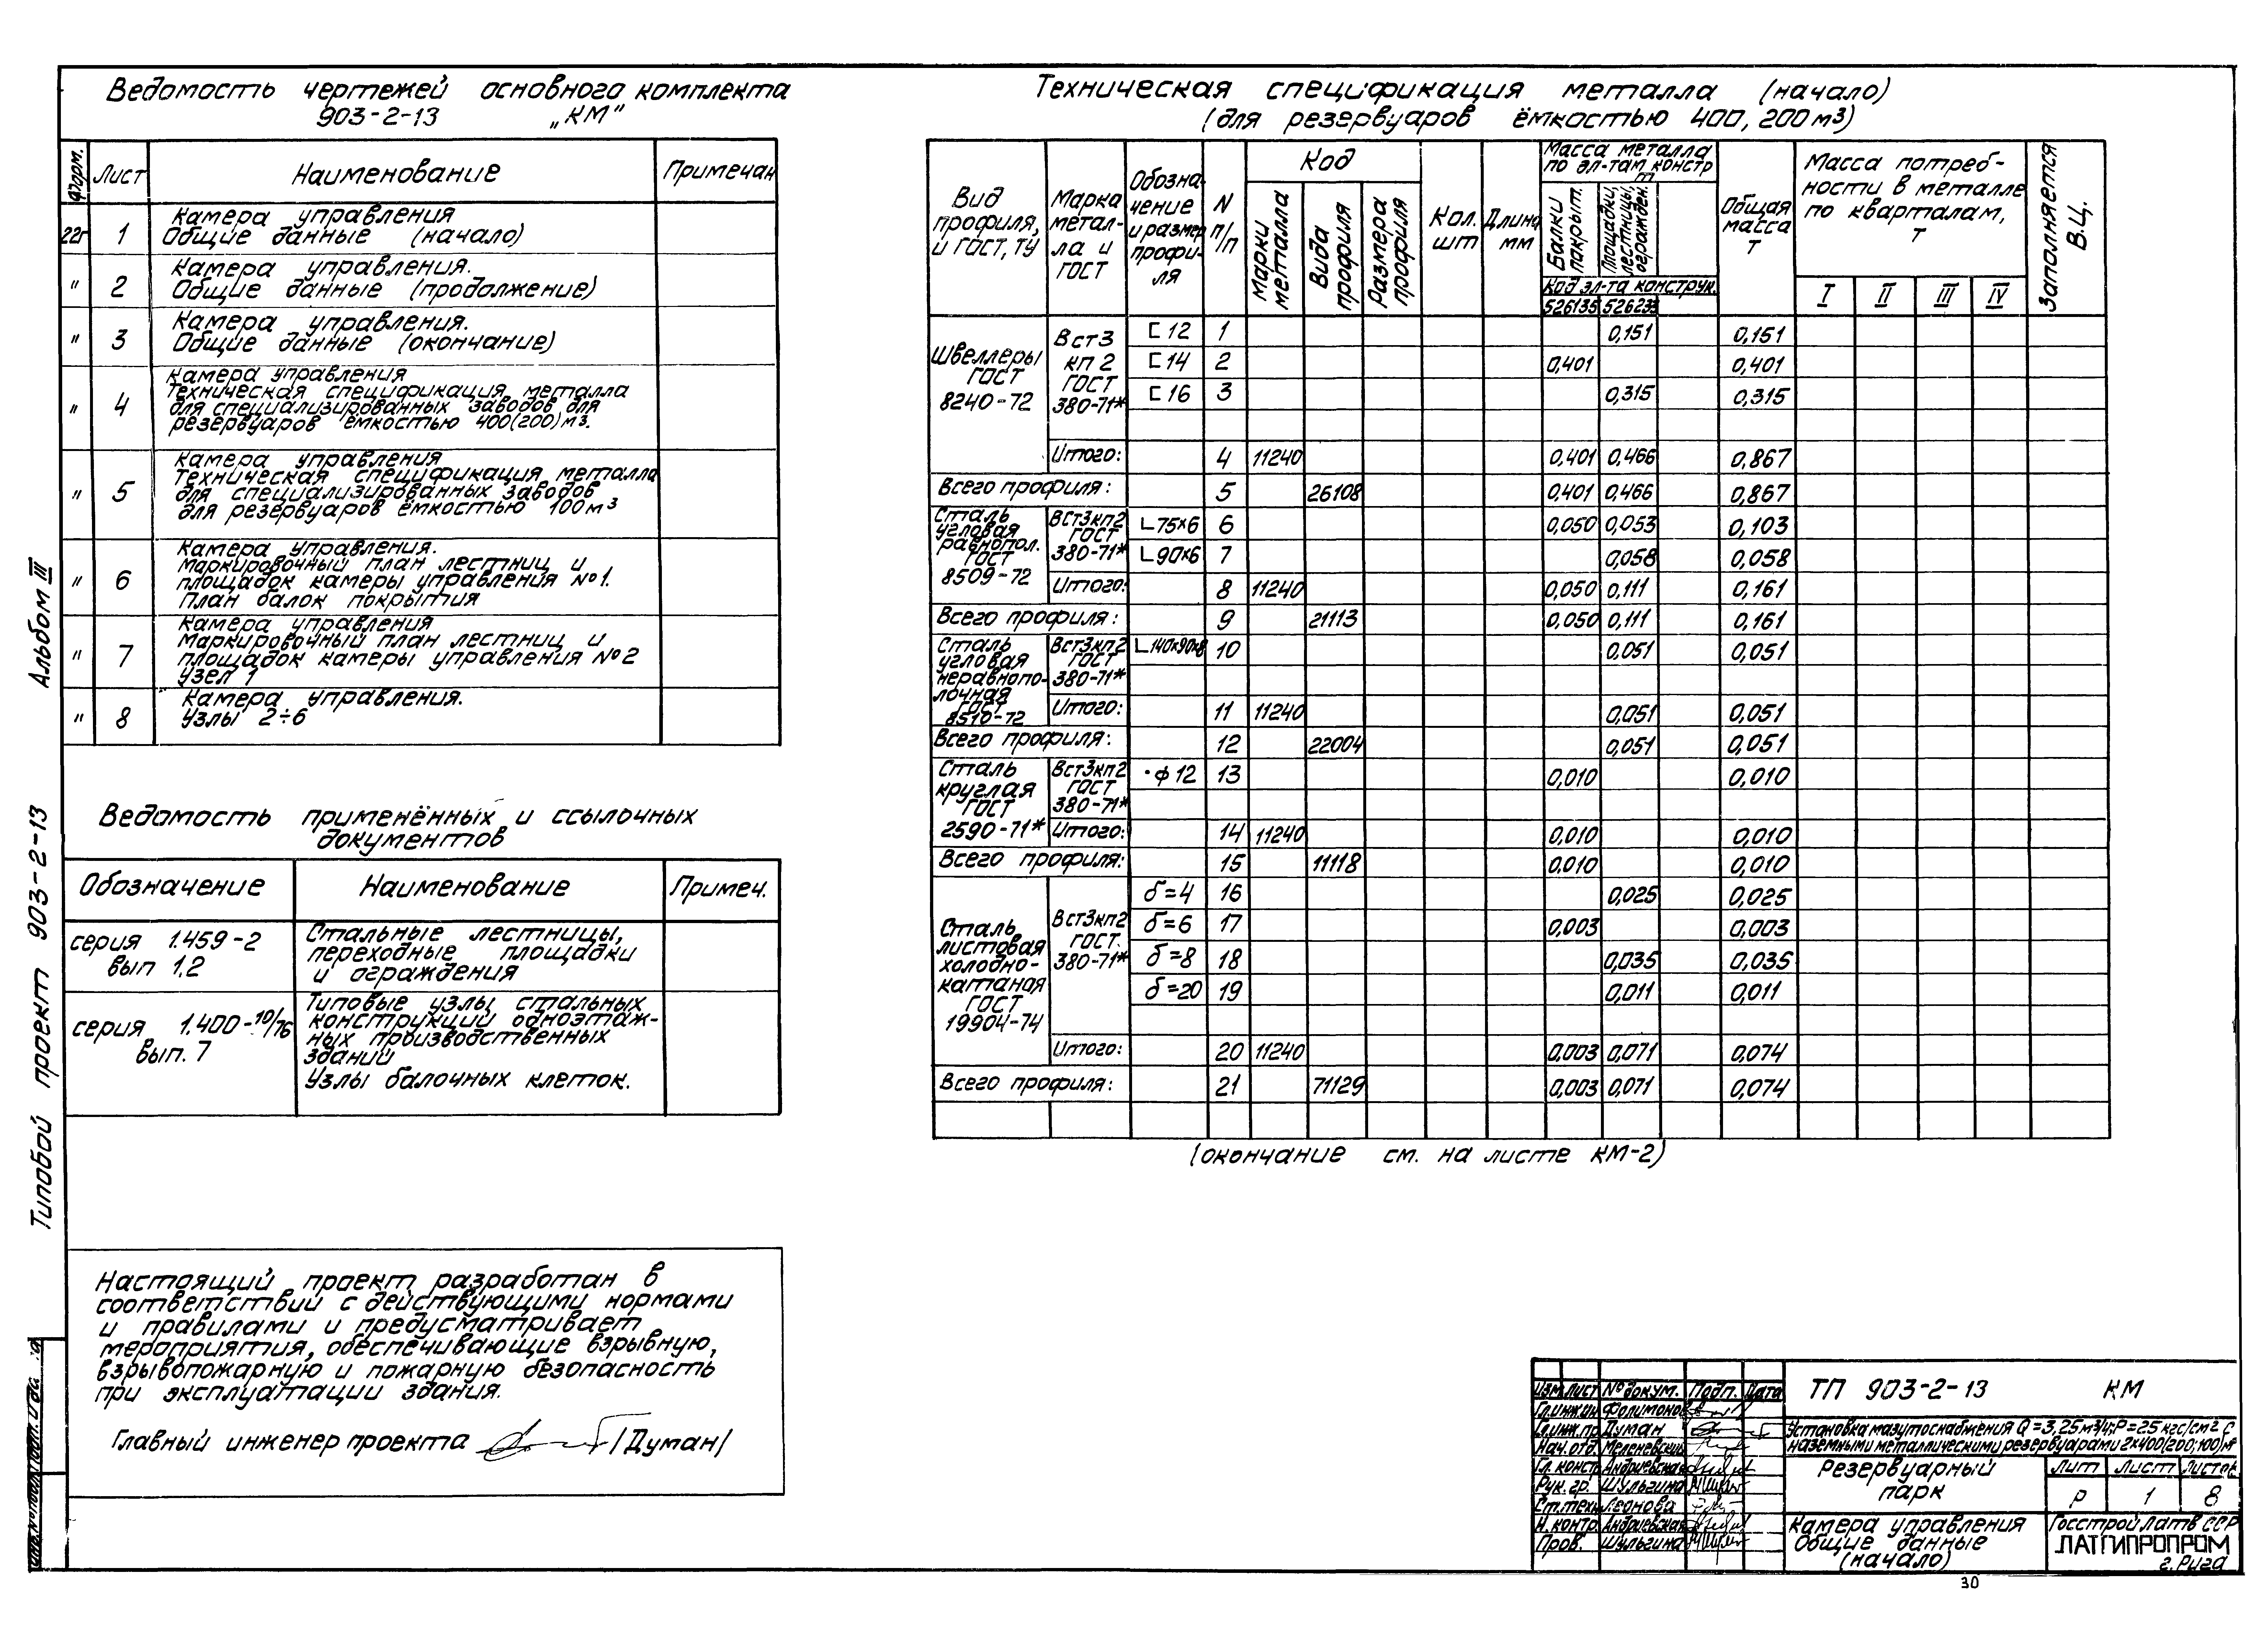 Ведомость чертежей основного комплекта
903-2-13 „КМ"
Форм. Лист Наименование Примечан
22г 1 Камера управления
Общие данные (начало)
" 2 Камера управления.
Общие данные (продолжение)
" 3 Камера управления.
Общие данные (окончание)
" 4 Камера управления
Техническая спецификация металла
для специализированных заводов для
резервуаров ёмкостью 400(200)м³.
" 5 Камера управления
Техническая спецификация металла
для специализированных заводов
для резервуаров ёмкостью 100м³
" 6 Камера управления.
Маркировочный план лестниц и
площадок камеры управления №1.
План балок покрытия
" 7 Камера управления
Маркировочный план лестниц и
площадок камеры управления №2
Узел 1
" 8 Камера управления.
Узлы 2÷6
Ведомость применённых и ссылочных
документов
Обозначение Наименование Примеч.
серия 1.459-2
вып 1.2
Стальные лестницы,
переходные площадки
и ограждения
серия 1.400-10/76
вып. 7
Типовые узлы стальных
конструкций одноэтаж-
ных производственных
зданий
Узлы балочных клеток.
Настоящий проект разработан в
соответствии с действующими нормами
и правилами и предусматривает
мероприятия, обеспечивающие взрывную,
взрывопожарную и пожарную безопасность
при эксплуатации здания.
Главный инженер проекта /Думан/
Альбом III
Типовой проект 903-2-13
Техническая спецификация металла (начало)
(для резервуаров ёмкостью 400, 200м³)
Вид
профиля,
и ГОСТ, ТУ
Марка
метал-
ла и
ГОСТ
Обозна-
чение
и размер
профи-
ля
N
п/п
Код
Марки
металла
Вида
профиля
Размера
профиля
Кол.
шт
Длина
мм
Масса металла
по эл-там констр
т
Балки
покрыт.
Площадки,
лестницы,
огражден.
Код эл-та конструк.
526135 526233
Общая
масса
Т
Масса потреб-
ности в металле
по кварталам,
Т
I II III IV
Заполняется
В.Ц.
Швеллеры
ГОСТ
8240-72
Вст3
кп 2
ГОСТ
380-71*
⊏ 12 1 0,151 0,151
⊏ 14 2 0,401 0,401
⊏ 16 3 0,315 0,315
Итого: 4 11240 0,401 0,466 0,867
Всего профиля: 5 26108 0,401 0,466 0,867
Сталь
угловая
равнопол.
ГОСТ
8509-72
Вст3кп2
ГОСТ
380-71*
∟75х6 6 0,050 0,053 0,103
∟90х6 7 0,058 0,058
Итого: 8 11240 0,050 0,111 0,161
Всего профиля: 9 21113 0,050 0,111 0,161
Сталь
угловая
неравнопо-
лочная
ГОСТ
8510-72
Вст3кп2
ГОСТ
380-71*
∟140х90х8 10 0,051 0,051
Итого: 11 11240 0,051 0,051
Всего профиля: 12 22004 0,051 0,051
Сталь
круглая
ГОСТ
2590-71*
Вст3кп2
ГОСТ
380-71*
·ф 12 13 0,010 0,010
Итого: 14 11240 0,010 0,010
Всего профиля: 15 11118 0,010 0,010
Сталь
листовая
холодно-
катаная
ГОСТ
19904-74
Вст3кп2
ГОСТ.
380-71*
δ=4 16 0,025 0,025
δ=6 17 0,003 0,003
δ=8 18 0,035 0,035
δ=20 19 0,011 0,011
Итого: 20 11240 0,003 0,071 0,074
Всего профиля: 21 71129 0,003 0,071 0,074
(окончание см. на листе КМ-2)
Изм. Лист № докум. Подп. Дата
Гл.инж.ин Филимонов
Гл.инж.пр Думан
Нач.отд. Меленевский
Гл. констр Андриевская
Рук. гр. Шульгина
Ст.техн Леонова
Н. контр. Андриевская
Пров. Шульгина
ТП 903-2-13 КМ
Установка мазутоснабжения Q=3,25м³/ч;Р=25 кгс/см² с
наземными металлическими резервуарами 2х400(200,100)м³
Резервуарный
парк
Лит Лист Листов
Р 1 8
Камера управления
Общие данные
(начало)
Госстрой Латв ССР
ЛАТГИПРОПРОМ
г. Рига
30